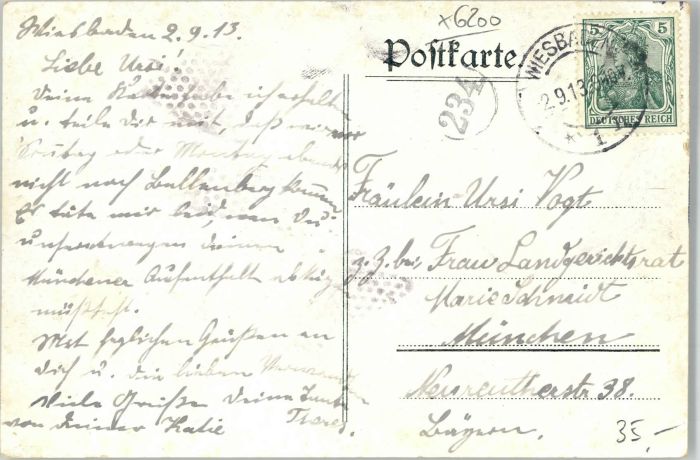 Wiesbaden 2.9.13.
Liebe Ursi!
Deine Karte habe ich erhalten
u. teile Dir mit, daß wir vor
Sonntag oder Montag abends
nicht nach Ballenberg kommen
Es täte mir leid, wenn Du
unseretwegen deinen
Münchener Aufenthalt abkürzen
müßtest.
Mit herzlichen Grüßen an
dich u. die lieben Verwandten
Viele Grüße Deine Tante
von deiner Katie
x6200
Postkarte.
234
WIESBADEN
2.9.13.
* 1
5 5
DEUTSCHES REICH
Fräulein Ursi Vogt
z. Z. bei Frau Landgerichtsrat
Marie Schmidt
München
Neureutherstr 38.
Bayern.
35,-